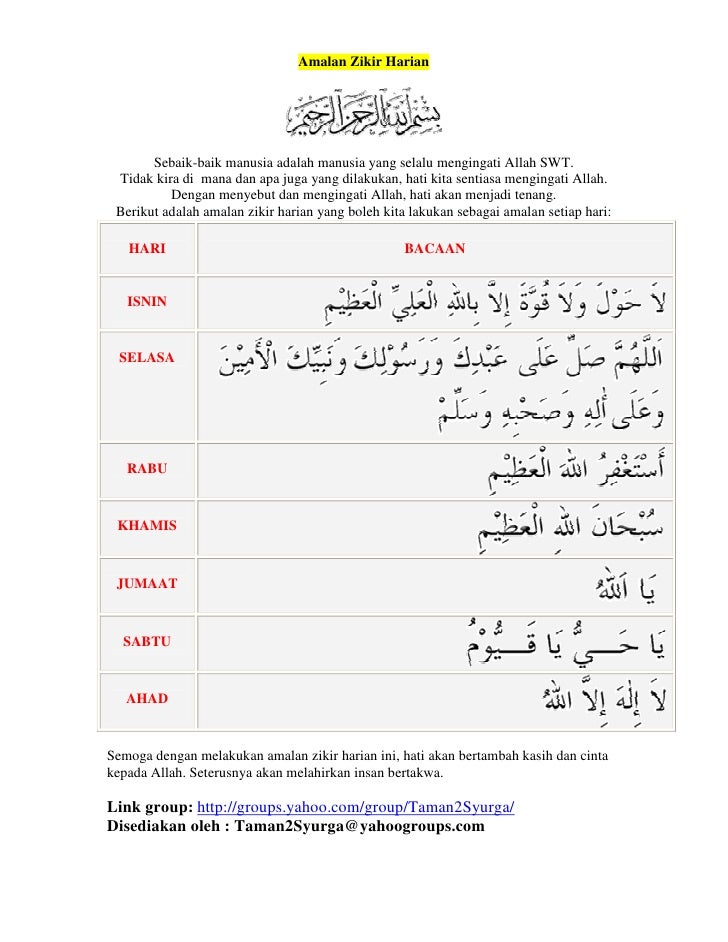 Amalan Zikir Harian
بسم الله الرحمن الرحيم
Sebaik-baik manusia adalah manusia yang selalu mengingati Allah SWT.
Tidak kira di mana dan apa juga yang dilakukan, hati kita sentiasa mengingati Allah.
Dengan menyebut dan mengingati Allah, hati akan menjadi tenang.
Berikut adalah amalan zikir harian yang boleh kita lakukan sebagai amalan setiap hari:
HARI BACAAN
ISNIN لاَ حَوْلَ وَلاَ قُوَّةَ إِلاَّ بِاللهِ الْعَلِيِّ الْعَظِيْمِ
SELASA اَللَّهُمَّ صَلِّ عَلَى عَبْدِكَ وَرَسُوْلِكَ وَنَبِيِّكَ الْأَمِيْنَ
وَعَلَى أٰلِهِ وَصَحْبِهِ وَسَلِّمْ
RABU أَسْتَغْفِرُ اللهَ الْعَظِيْمِ
KHAMIS سُبْحَانَ اللهِ الْعَظِيْمِ
JUMAAT يَا اَللهُ
SABTU يَا حَـــيُّ يَا قَـــيُّوْمُ
AHAD لاَ إِلٰهَ إِلاَّ اللهُ
Semoga dengan melakukan amalan zikir harian ini, hati akan bertambah kasih dan cinta
kepada Allah. Seterusnya akan melahirkan insan bertakwa.
Link group: http://groups.yahoo.com/group/Taman2Syurga/
Disediakan oleh : Taman2Syurga@yahoogroups.com